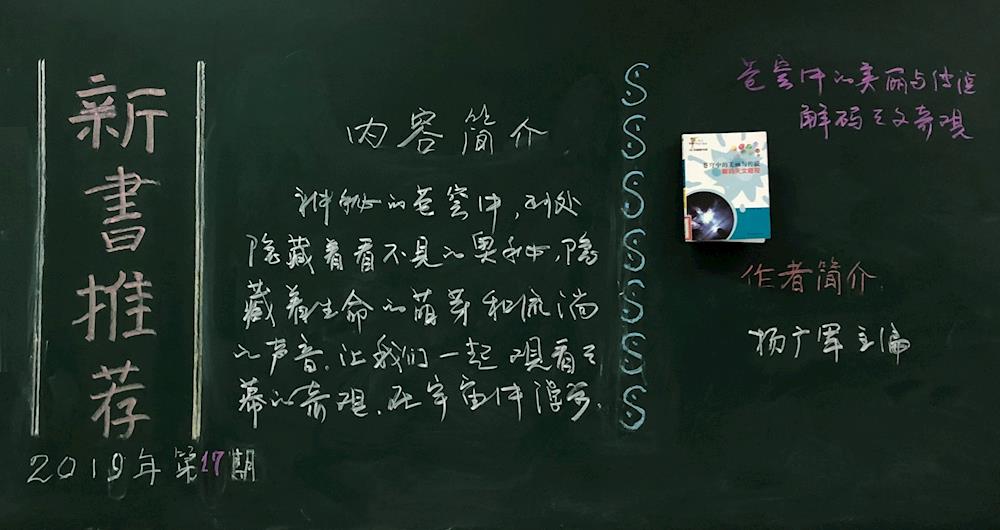 新書推荐
2019年第17期
内容简介
神秘的苍穹中，到处
隐藏着看不见的奥秘，隐
藏着生命的萌芽和流淌
的声音，让我们一起观看天
幕的奇观，在宇宙中漫步。
苍穹中的美丽与传说
解码天文奇观
苍穹中的美丽与传说
解码天文奇观
作者简介
杨广军主编